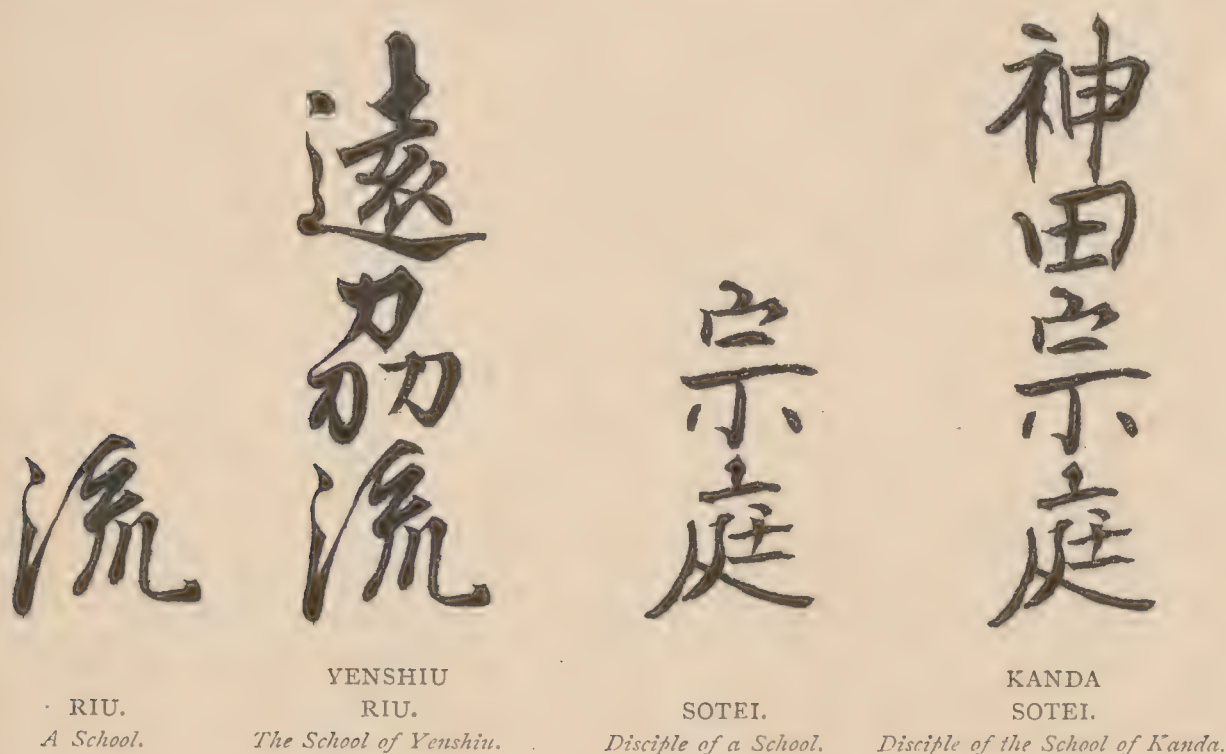 流
RIU.
A School.
遠刕流
YENSHIU
RIU.
The School of Yenshiu.
宗庭
SOTEI.
Disciple of a School.
神田宗庭
KANDA
SOTEI.
Disciple of the School of Kanda.